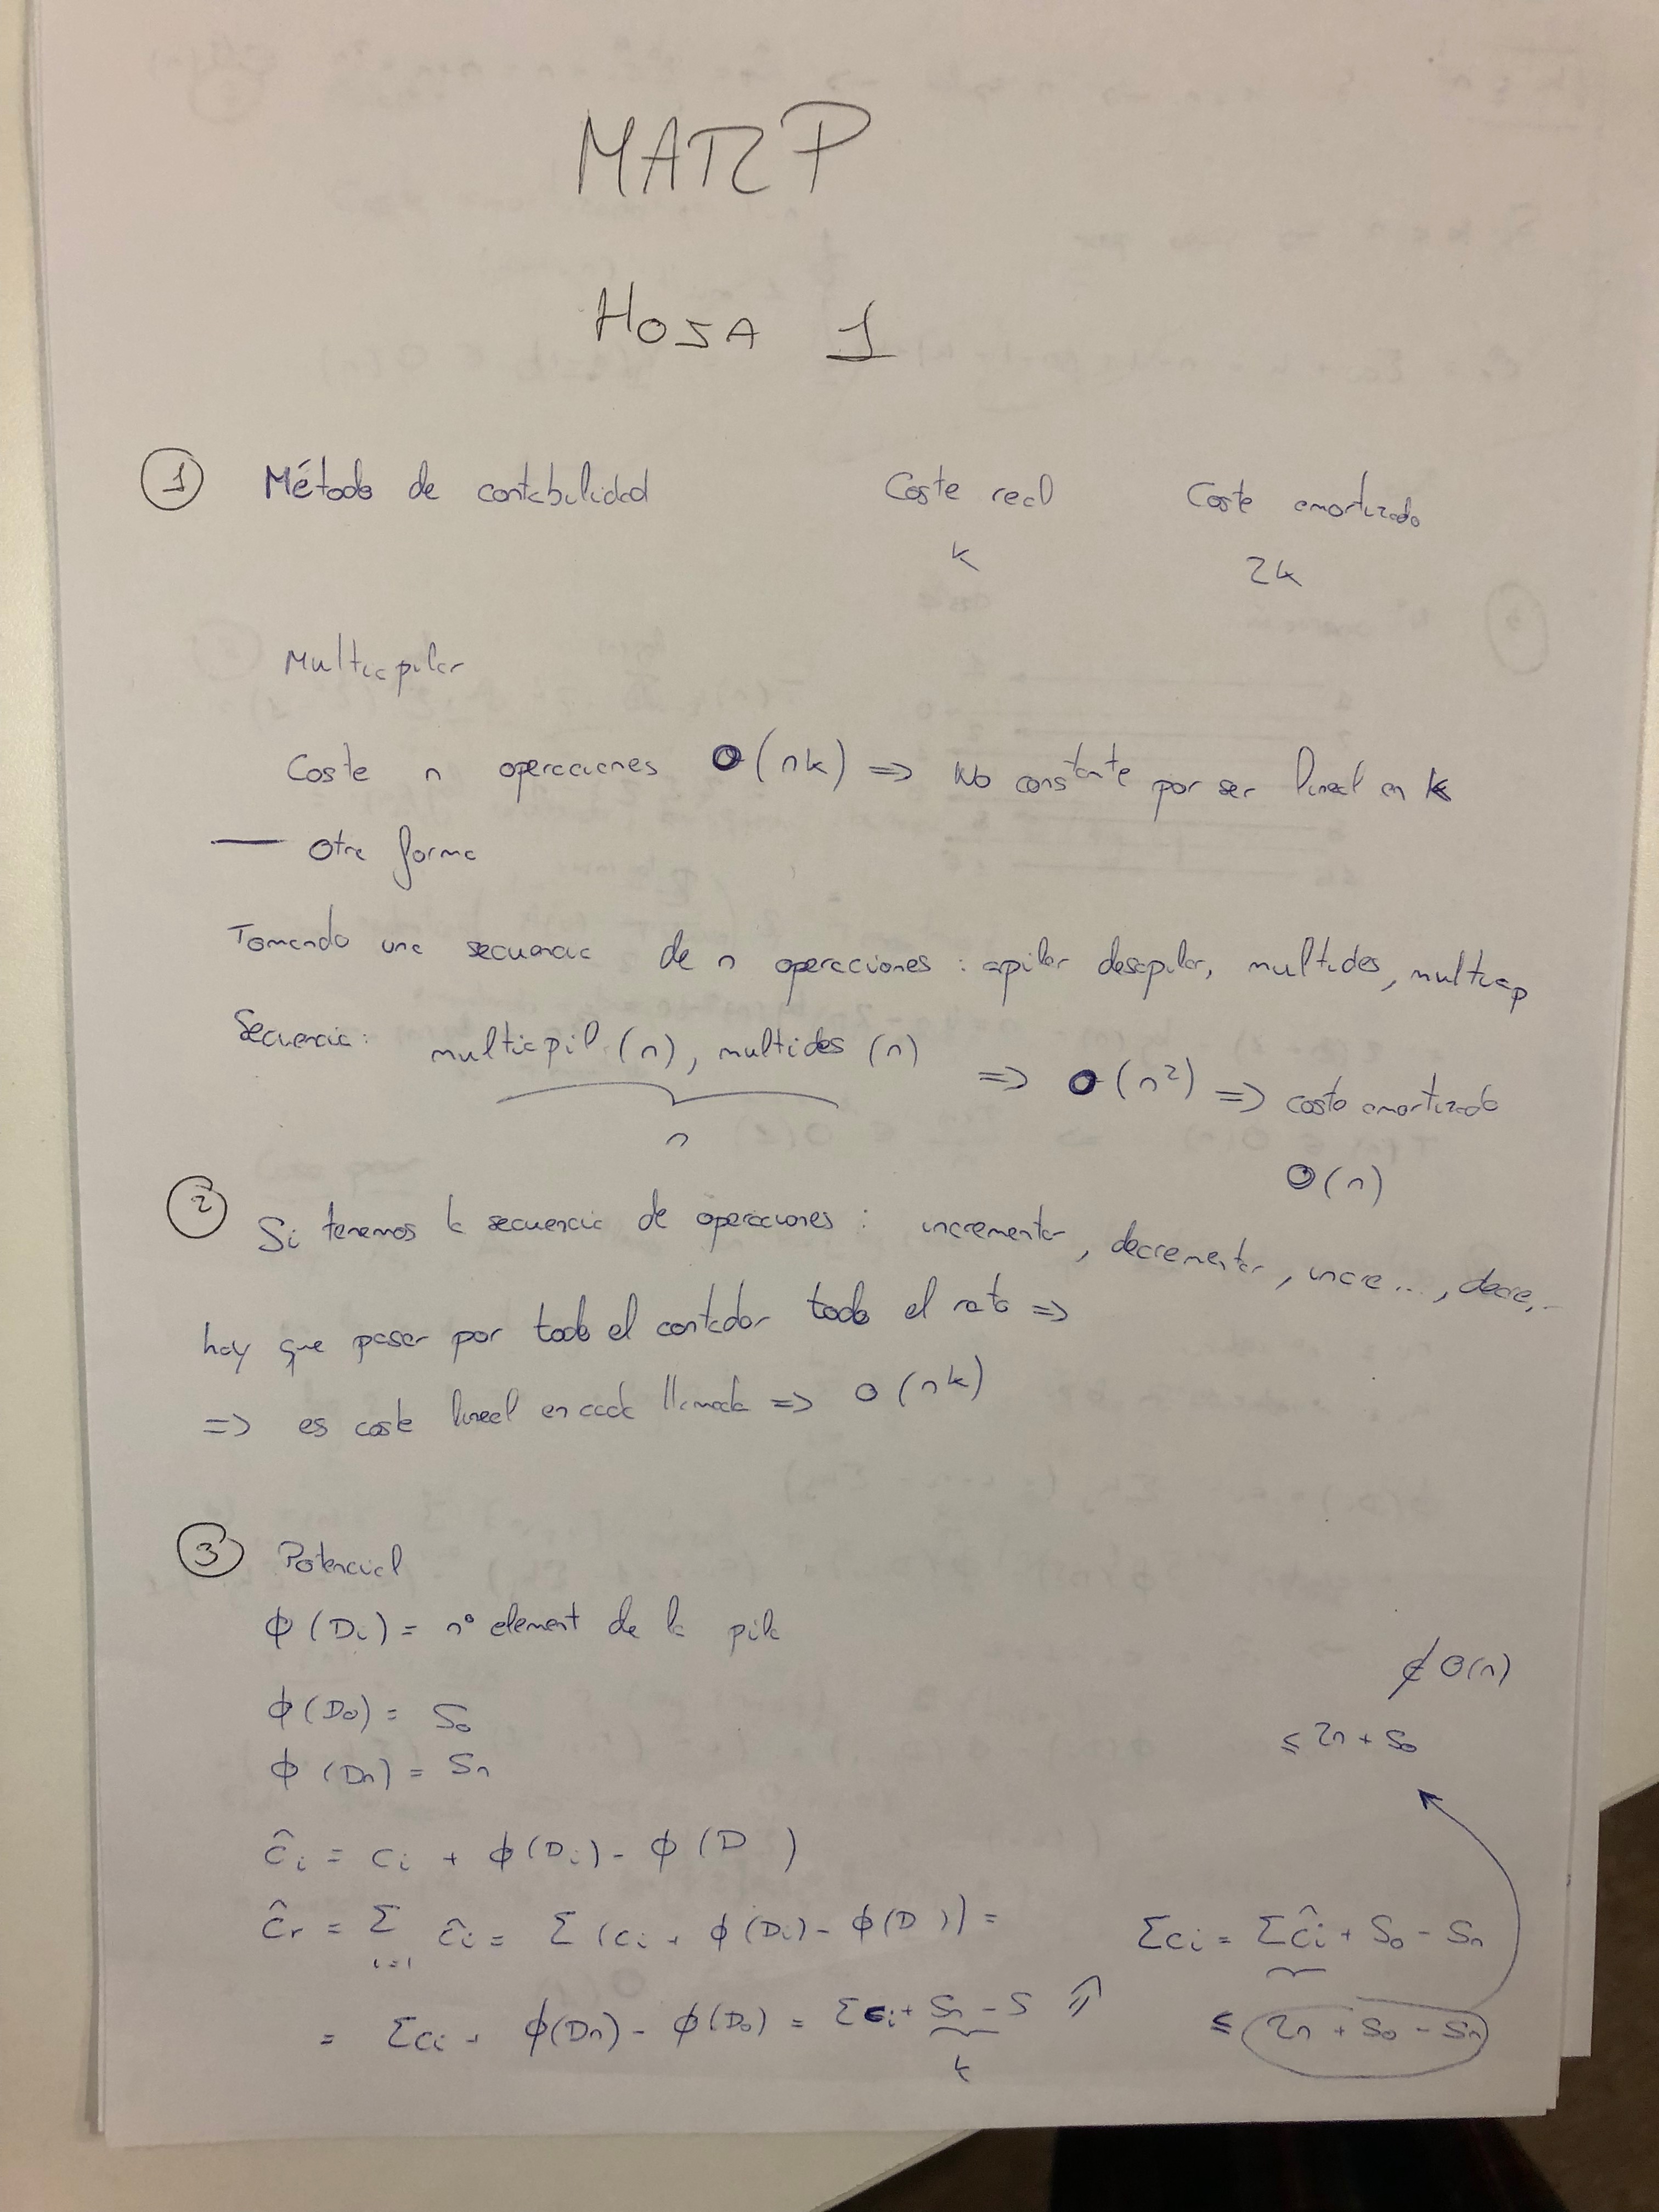 MATRP
HOJA 1
1 Método de contabilidad Coste real Coste amortizado
k 2k
Multiapilar
Coste n operaciones O(nk) => No constante por ser lineal en k
— Otra forma
Tomando una secuencia de n operaciones : apilar desapilar, multides, multiap
Secuencia: multiapil (n), multides (n) => O(n²) => costo amortizado
n
O(n)
2 Si tenemos la secuencia de operaciones : incrementar, decrementar, incre..., decre,..
hay que pasar por todo el contador todo el rato =>
=> es coste lineal en cada llamada => O(nk)
3 Potencial
ϕ(Di) = nº element de la pila
∉ O(n)
ϕ(D0) = S0
≤ 2n + S0
ϕ(Dn) = Sn
ĉi = ci + ϕ(Di) - ϕ(D )
ĉr = Σ ĉi = Σ (ci + ϕ(Di) - ϕ(D )) = Σci = Σĉi + S0 - Sn
i=1
= Σci + ϕ(Dn) - ϕ(D0) = Σci + Sn - S ⇗ ≤ 2n + S0 - Sn
k